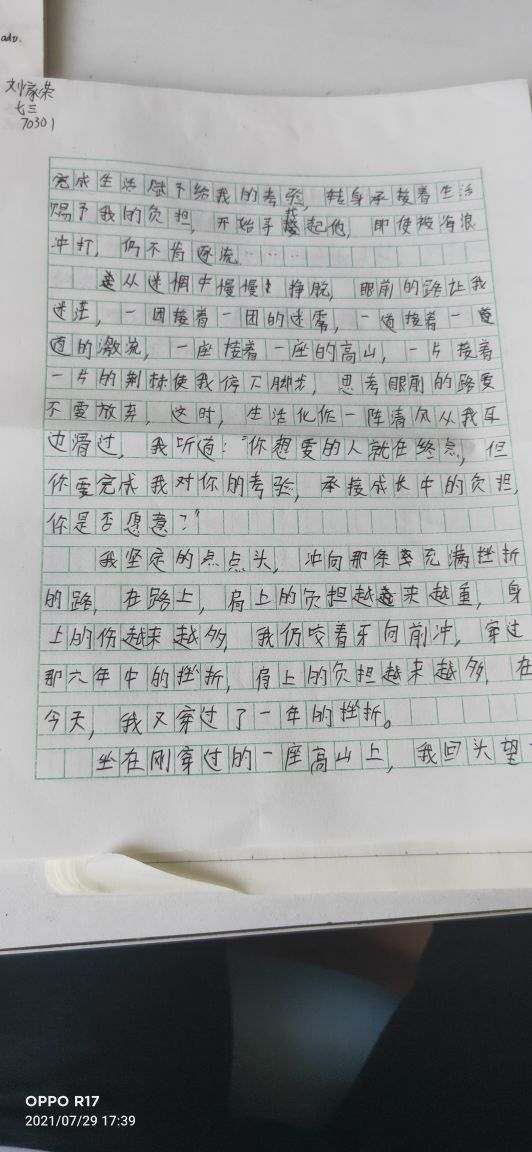 adv.
刘家荣
七三
70301
完成生活赋予给我的考验，转身承接着生活
赐予我的负担，开始手接起他，即使被海浪
冲打，仍不肯逐流……
从迷惘中慢慢挣脱，眼前的路让我
迷茫，一团接着一团的迷雾，一道接着一
道的激流，一座接着一座的高山，一片接着
一片的荆棘使我停下脚步，思考眼前的路要
不要放弃，这时，生活化作一阵清风从我耳
边滑过，我听道："你想要的人就在终点，但
你要完成我对你的考验，承接成长中的负担，
你是否愿意？"
我坚定的点点头，冲向那条充满挫折
的路，在路上，肩上的负担越来越重，身
上的伤越来越多，我仍咬着牙向前冲，穿过
那六年中的挫折，肩上的负担越来越多，在
今天，我又穿过了一年的挫折。
坐在刚穿过的一座高山上，我回头望
OPPO R17
2021/07/29 17:39